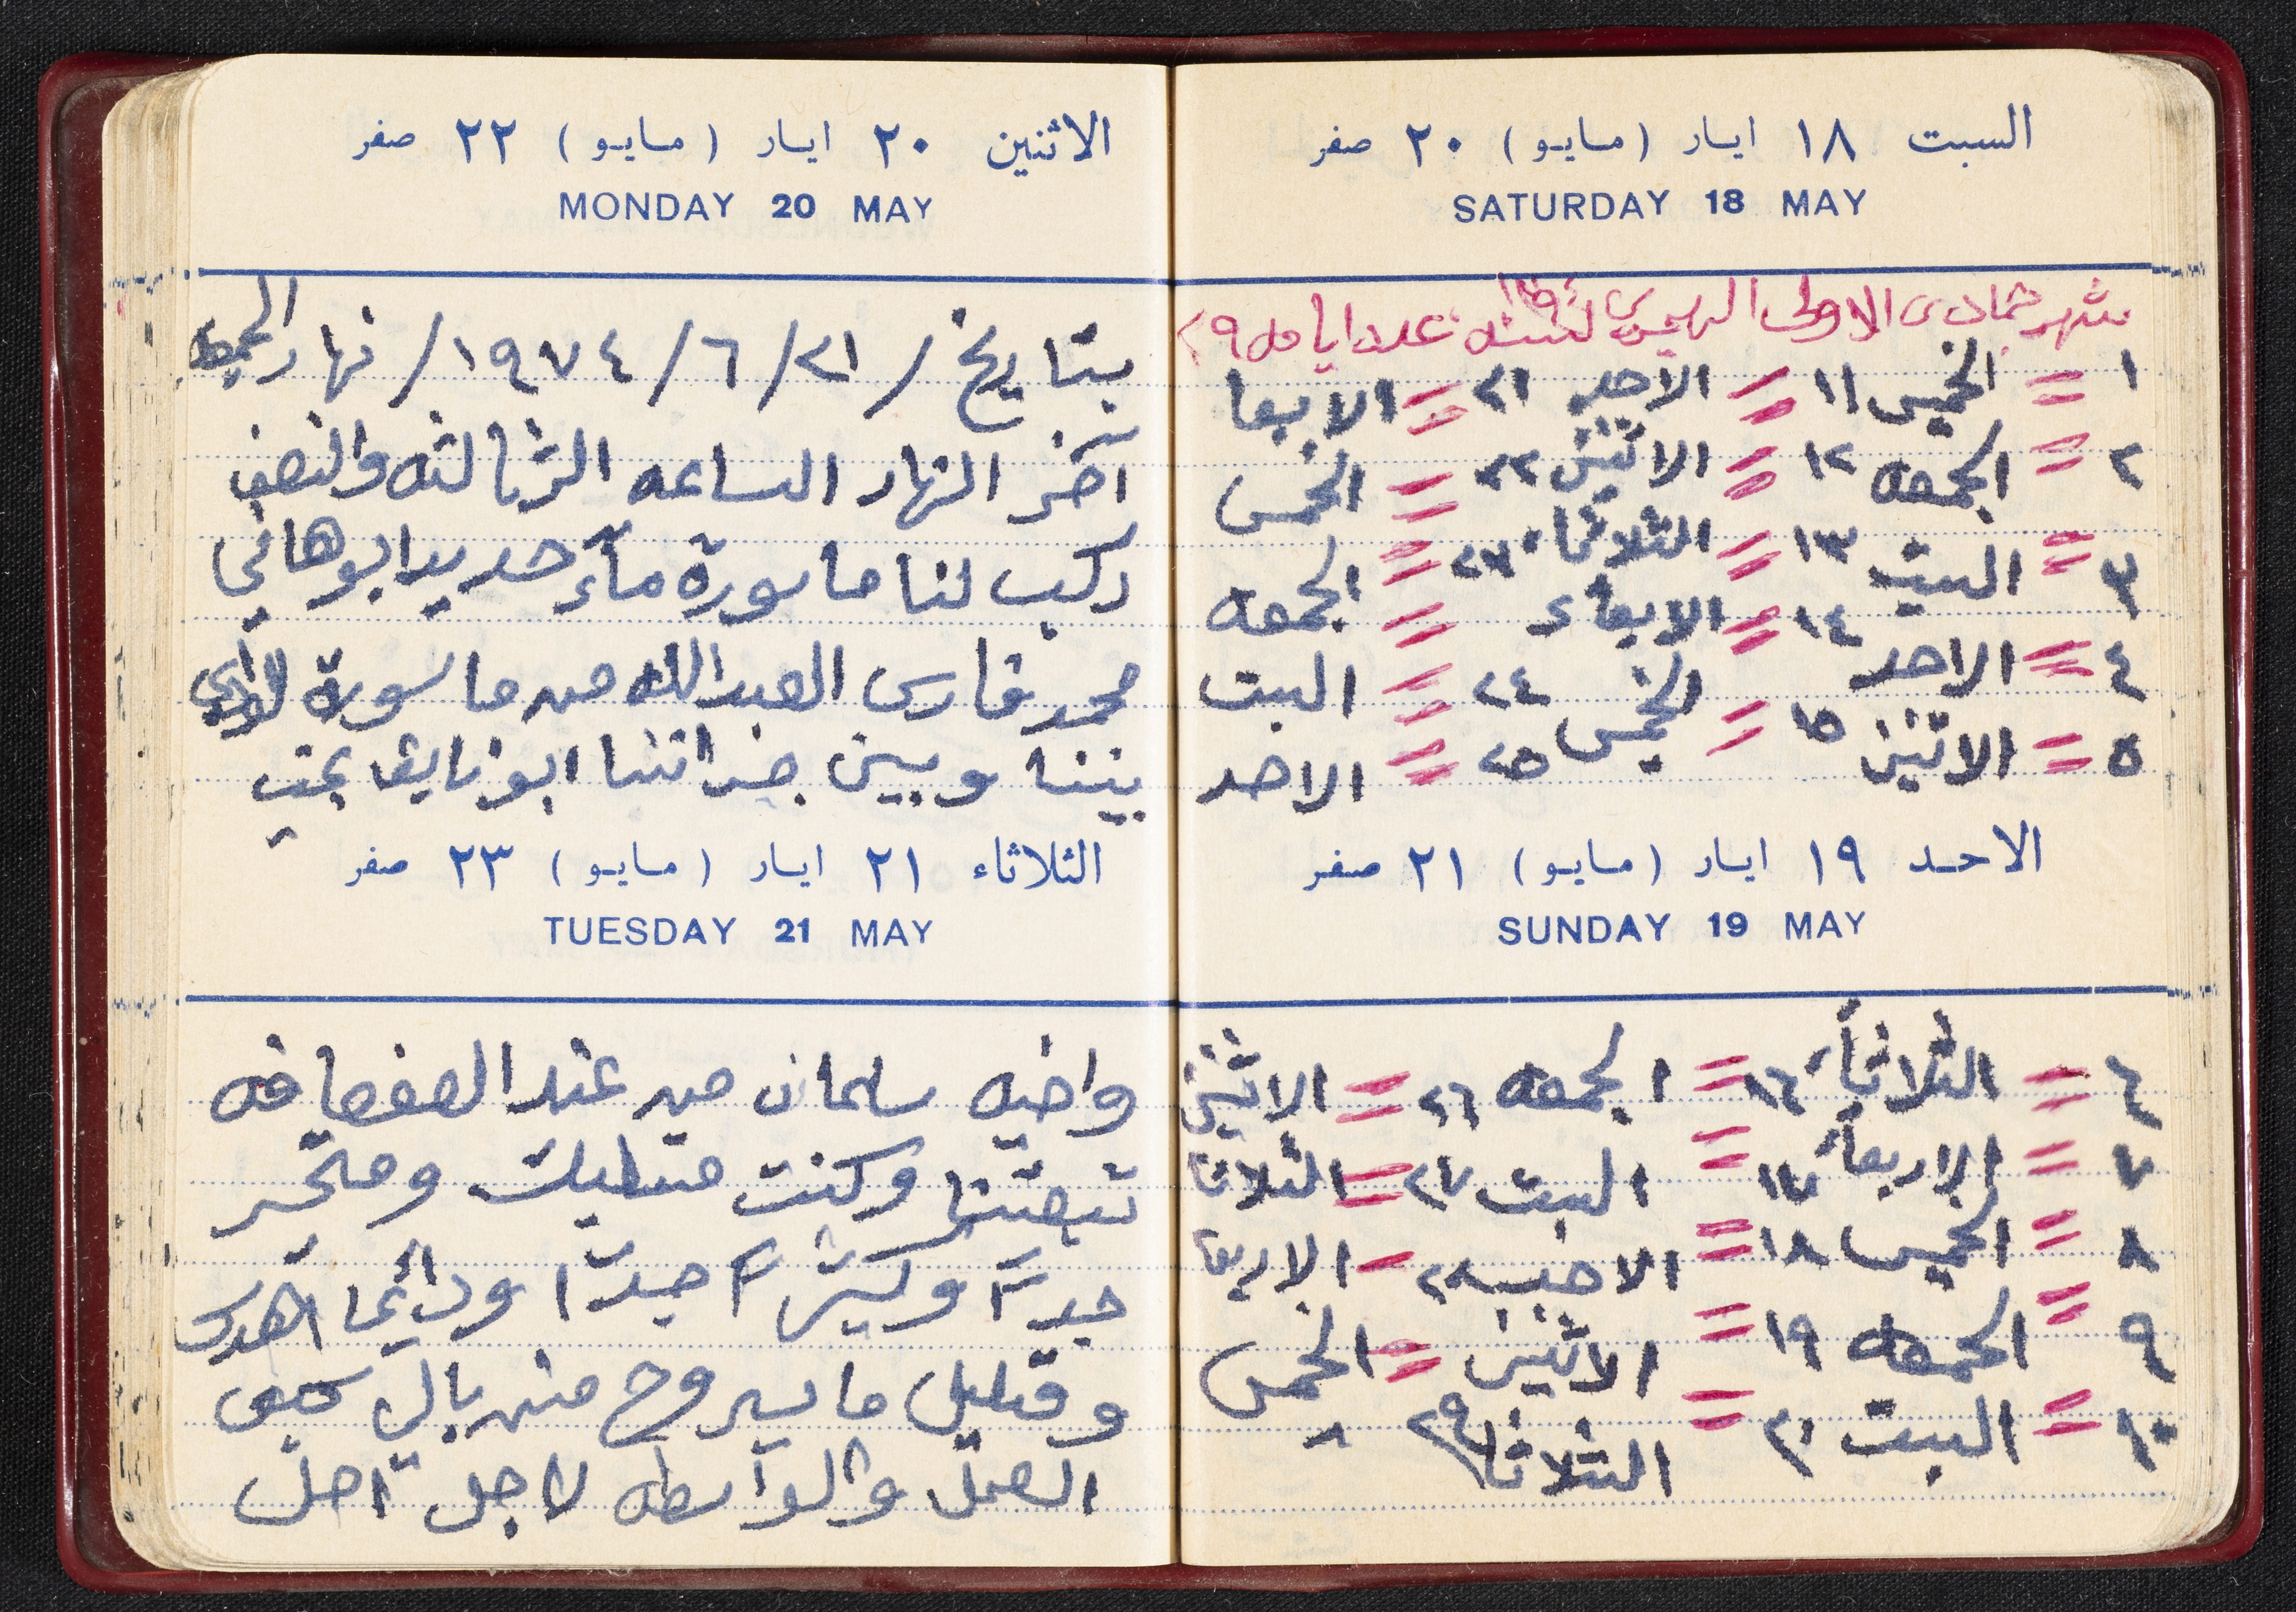 السبت ١٨ ايار (مايو) ٢٠ صفر
SATURDAY 18 MAY
شهر جمادى الاولى الهجري لسنة عدد ايامه ٢٩
١ = الخميس ١١ = الاحد ٢١ = الابعا
٢ = الجمعه ١٢ = الاثنين ٢٢ = الخمس
٣ = السبت ١٣ = الثلاثاء ٢٣ = الجمعه
٤ = الاحد ١٤ = الابعاء = السبت
٥ = الاثنين ١٥ = الخمس ٢٤ = الاحد ٢٥
الاحد ١٩ ايار (مايو) ٢١ صفر
SUNDAY 19 MAY
٦ = الثلاثاء ١٦ = الجمعه ٢٦ = الاثنين
٧ = الاربعاء ١٧ = السبت ٢٧ = الثلاثا
٨ = الخميس ١٨ = الاحد ٢٨ = الاربعا
٩ = الجمعه ١٩ = الاثنين = الخمس
١٠ = السبت ٢٠ = الثلاثا ٢٩
الاثنين ٢٠ ايار (مايو) ٢٢ صفر
MONDAY 20 MAY
بتاريخ / ٢١/٦/١٩٧٤/ نهار الجمعه
آخر النهار الساعه الثالثه والنصف
ركب لنا ماسورة مآء حديد ابو هاني
محمد فارس العبدالله من ماسورة
بيننا وبين جيراننا ابو نايف بحيت
الثلاثاء ٢١ ايار (مايو) ٢٣ صفر
TUESDAY 21 MAY
واخيه سلمان من عند الصفصافه
تبعتنا وكنت متسايك ومتحير
جدآ وكثيرآ جدآ ودائمآ
وقليل ما يروح من بالي
العمل والواسطه لاجل احل